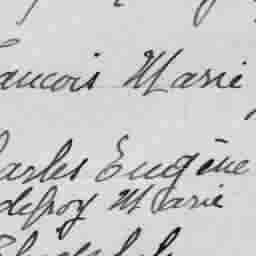 ancois Marie
arles Eugène
defroy Marie